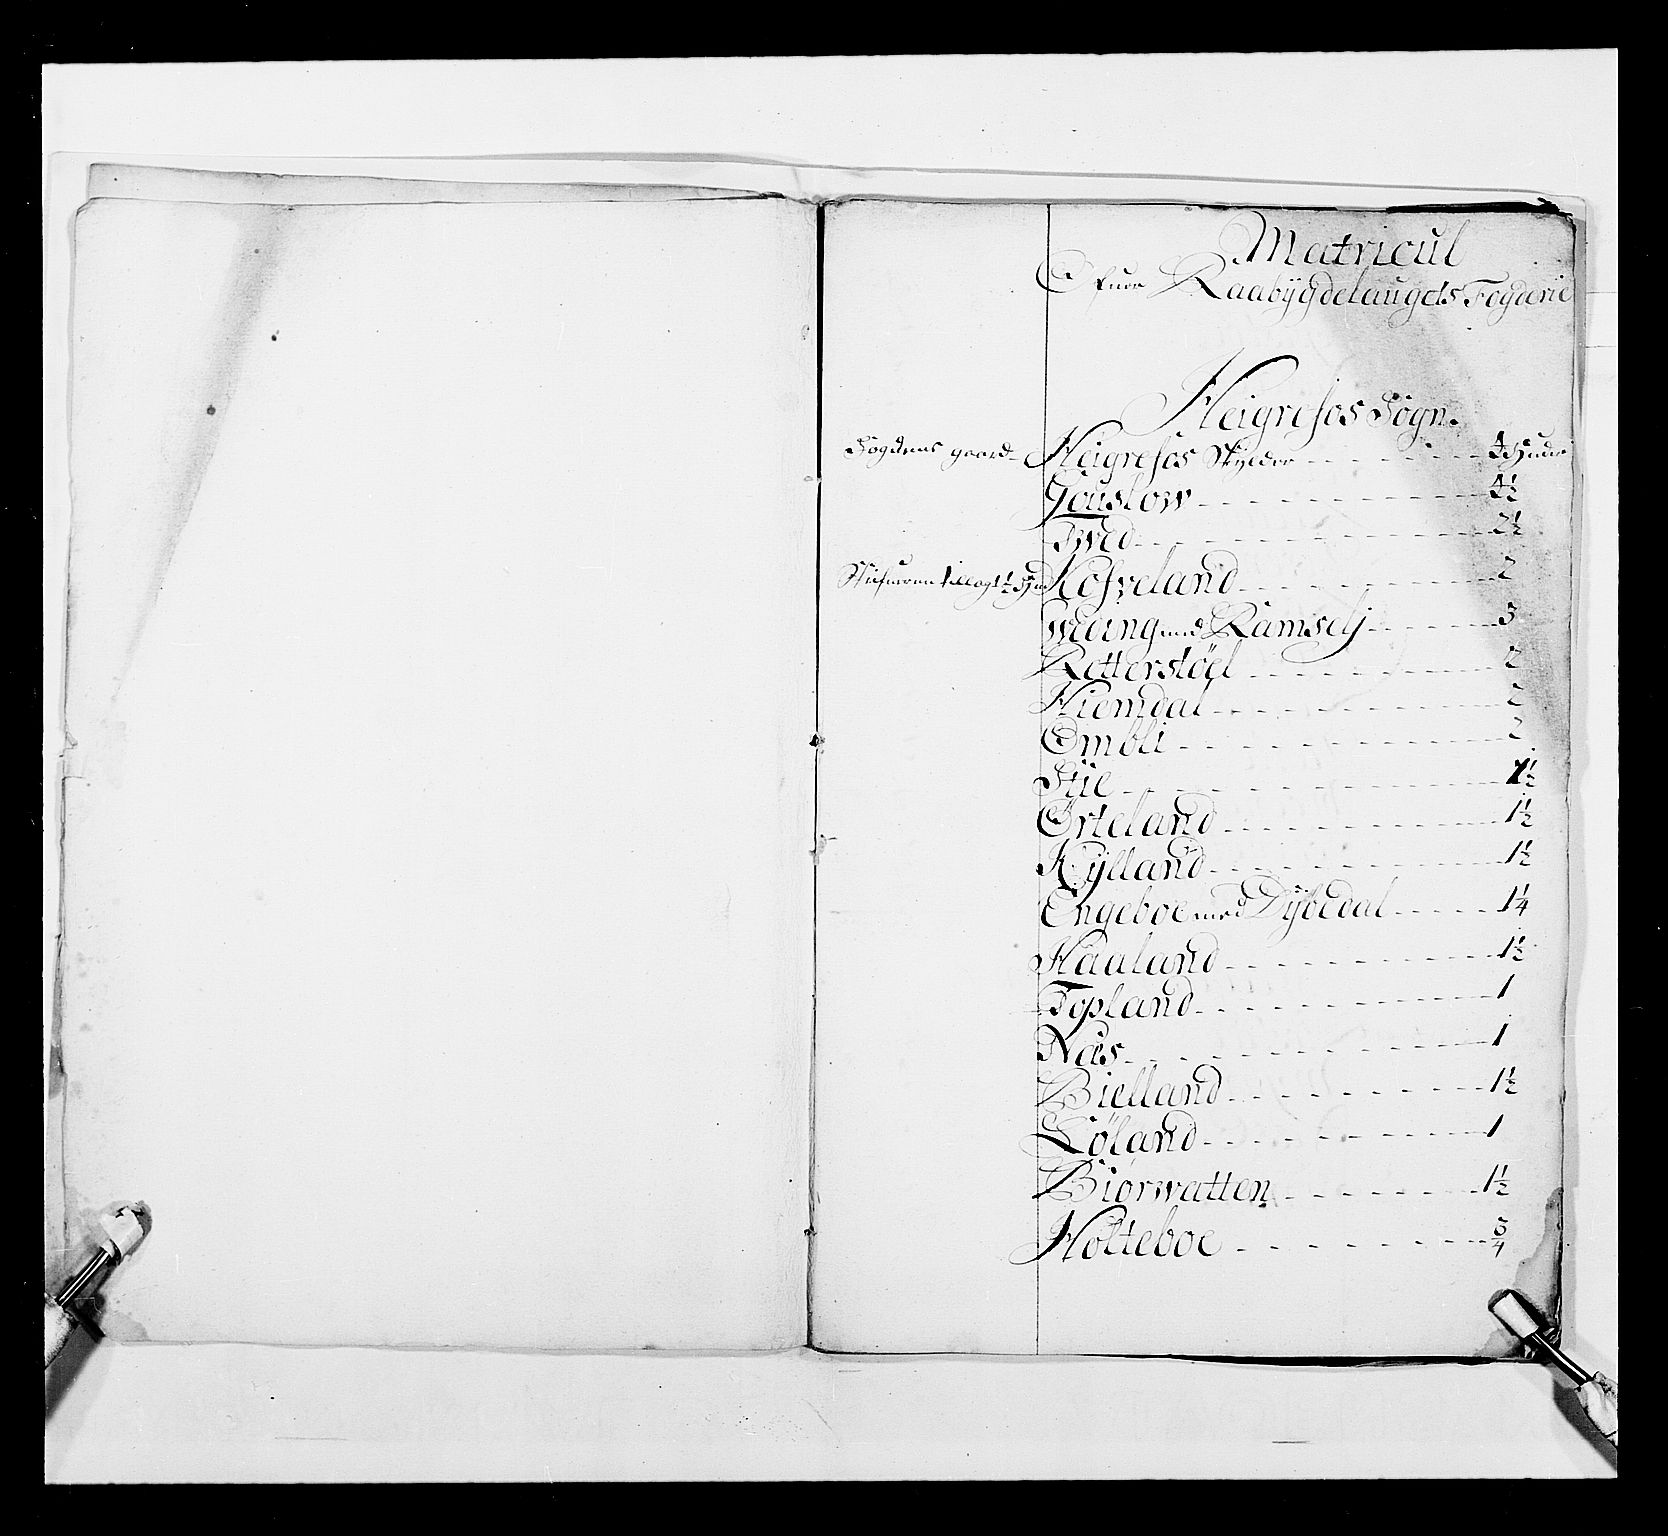 Matricul
Ofuer Raabÿgdelaugets Fogderie
Heigrefos Sogn.
Fogdens gaard Heigrefos Skylder 4 Huder
Gouslow 4½
Tved 2½
tillagt ½ Kosveland 2
Weding med Ramselj 3
Retterstøel 2
Hiemdal 2
Ombli 2
Stie 1½
Orteland 1½
Kÿlland 1½
Engeboe med Dÿbedal 1¼
Haaland 1½
Topland 1
Næs 1
Bielland 1½
Løland 1
Biorwatten 1½
Holteboe ¾